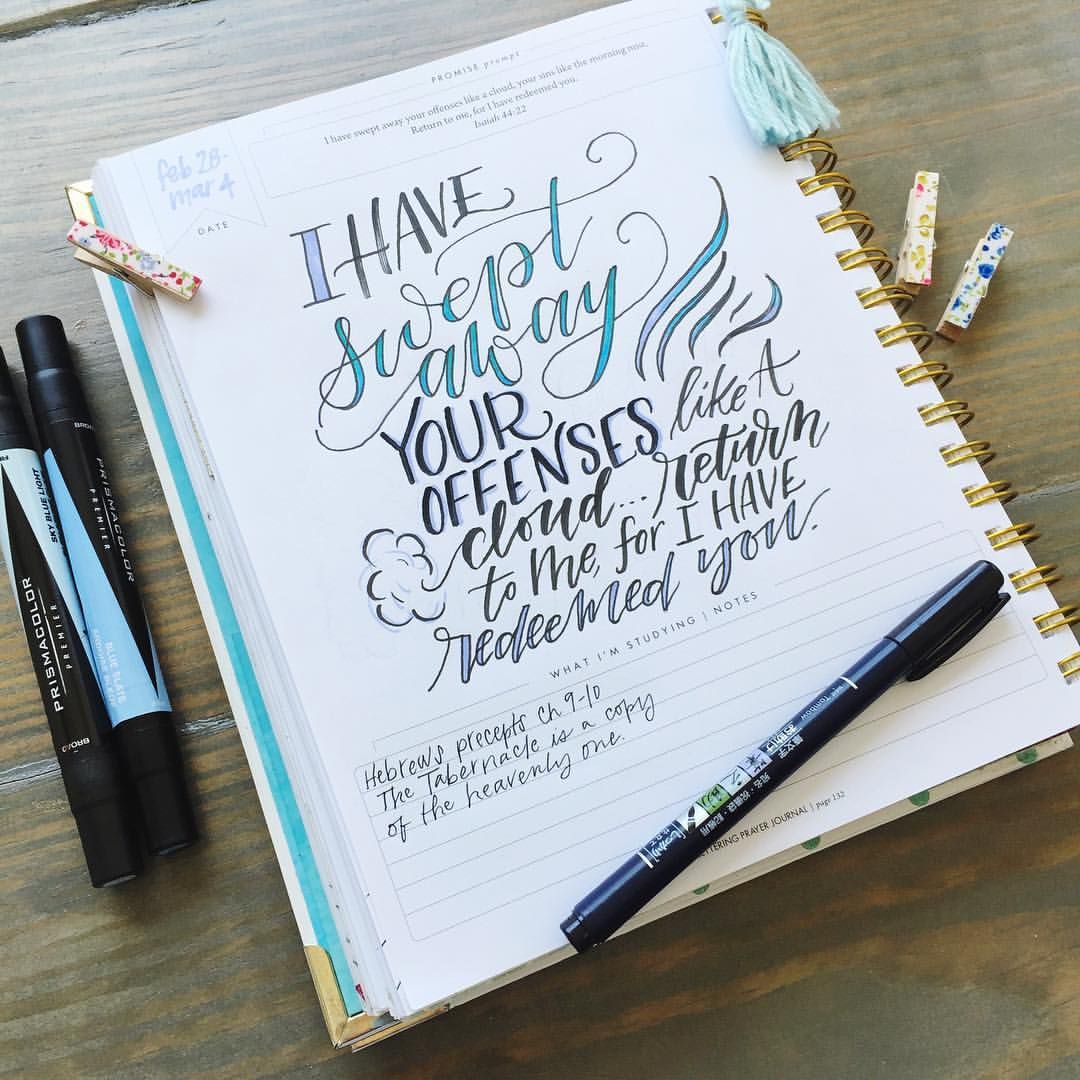 PROMISE prompt
I have swept away your offenses like a cloud, your sins like the morning mist.
Return to me, for I have redeemed you.
Isaiah 44:22
feb 28-
mar 4
DATE
I HAVE
swept
away
YOUR
OFFENSES like A
cloud... return
to me, for I HAVE
redeemed you.
WHAT I'M STUDYING | NOTES
Hebrews precepts ch 9-10
The Tabernacle is a copy
of the heavenly one.
ETTERING PRAYER JOURNAL | page 132
PRISMACOLOR
PREMIER
SKY BLUE LIGHT
BROAD
PRISMACOLOR
PREMIER
BLUE SLATE
BROAD
Tombow